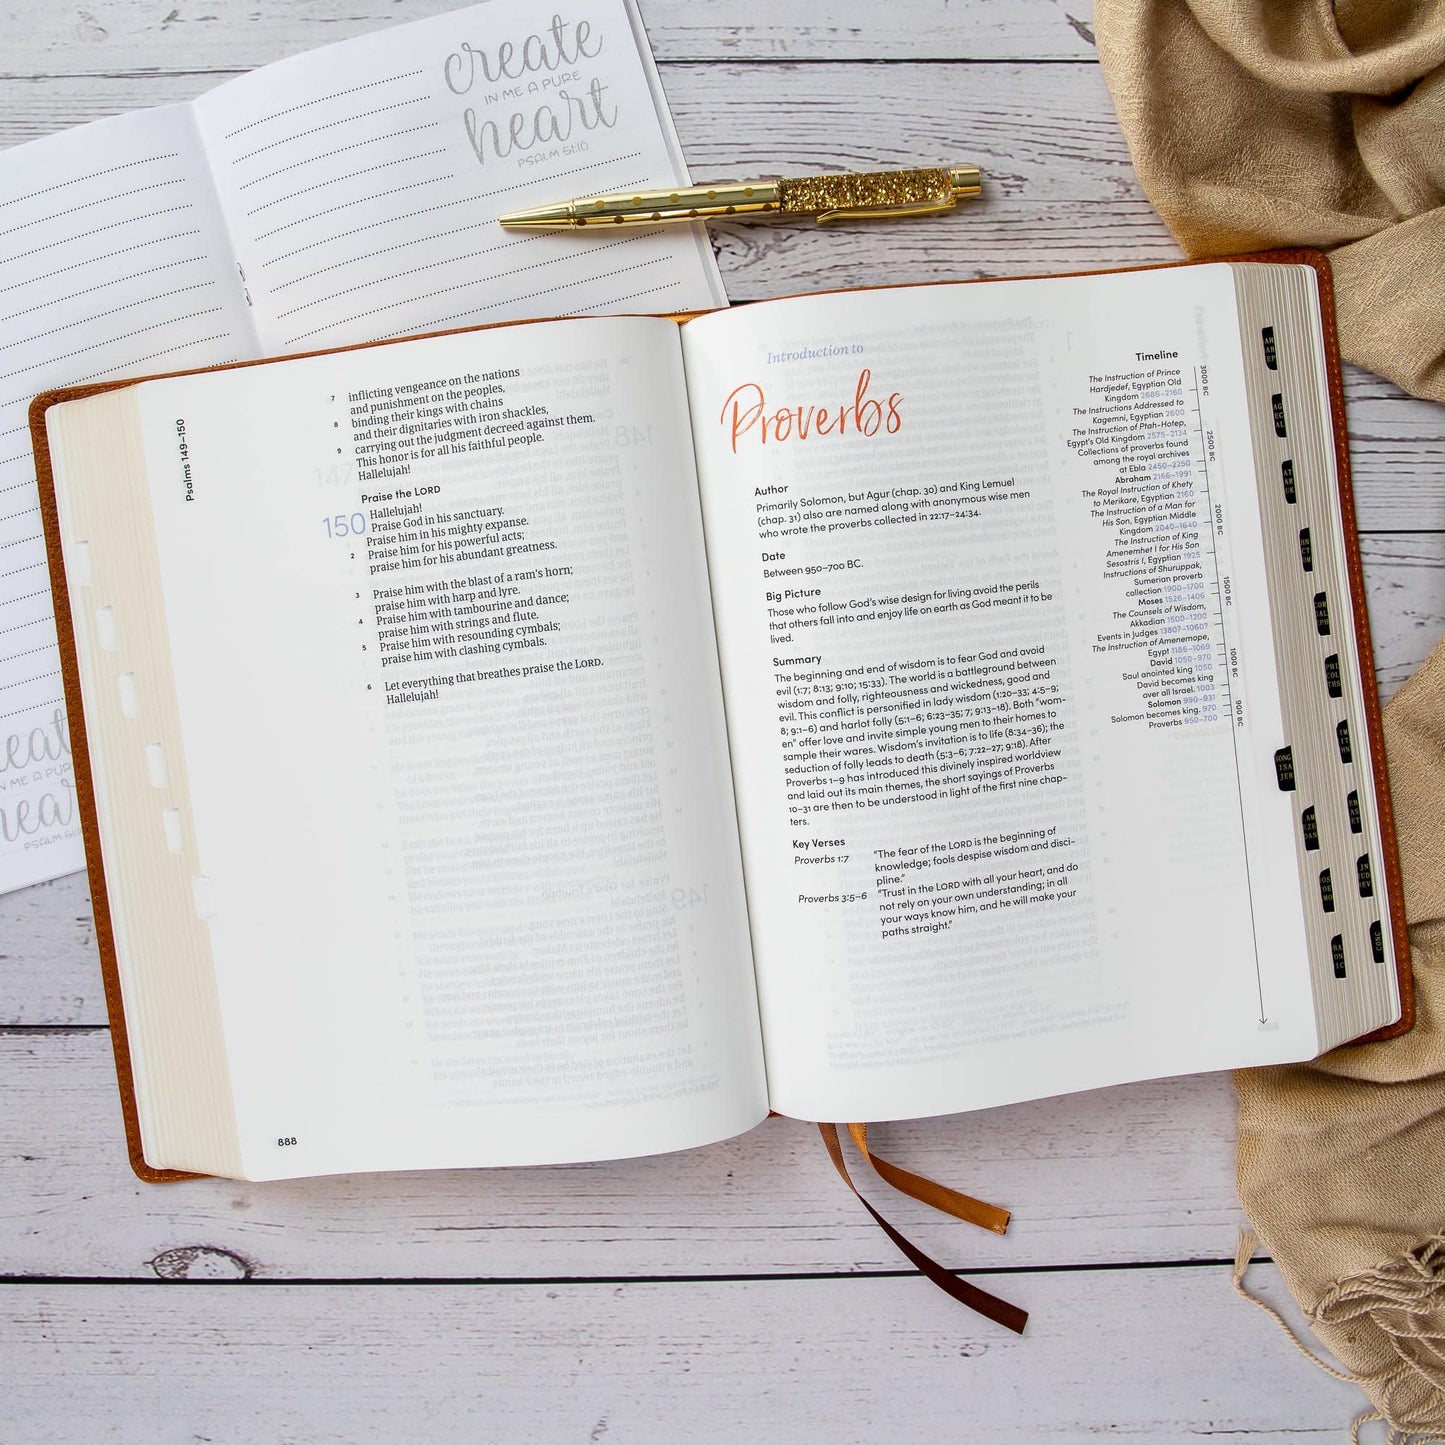 create
IN ME A PURE
heart
PSALM 51:10
Psalms 149–150
7 inflicting vengeance on the nations
and punishment on the peoples,
8 binding their kings with chains
and their dignitaries with iron shackles,
9 carrying out the judgment decreed against them.
This honor is for all his faithful people.
Hallelujah!
Praise the LORD
150 Hallelujah!
Praise God in his sanctuary.
Praise him in his mighty expanse.
2 Praise him for his powerful acts;
praise him for his abundant greatness.
3 Praise him with the blast of a ram's horn;
praise him with harp and lyre.
4 Praise him with tambourine and dance;
praise him with strings and flute.
5 Praise him with resounding cymbals;
praise him with clashing cymbals.
6 Let everything that breathes praise the LORD.
Hallelujah!
888
Introduction to
Proverbs
Author
Primarily Solomon, but Agur (chap. 30) and King Lemuel
(chap. 31) also are named along with anonymous wise men
who wrote the proverbs collected in 22:17–24:34.
Date
Between 950–700 BC.
Big Picture
Those who follow God's wise design for living avoid the perils
that others fall into and enjoy life on earth as God meant it to be
lived.
Summary
The beginning and end of wisdom is to fear God and avoid
evil (1:7; 8:13; 9:10; 15:33). The world is a battleground between
wisdom and folly, righteousness and wickedness, good and
evil. This conflict is personified in lady wisdom (1:20–33; 4:5–9;
8; 9:1–6) and harlot folly (5:1–6; 6:23–35; 7; 9:13–18). Both "wom-
en" offer love and invite simple young men to their homes to
sample their wares. Wisdom's invitation is to life (8:34–36); the
seduction of folly leads to death (5:3–6; 7:22–27; 9:18). After
Proverbs 1–9 has introduced this divinely inspired worldview
and laid out its main themes, the short sayings of Proverbs
10–31 are then to be understood in light of the first nine chap-
ters.
Key Verses
Proverbs 1:7 "The fear of the LORD is the beginning of
knowledge; fools despise wisdom and disci-
pline."
Proverbs 3:5–6 "Trust in the LORD with all your heart, and do
not rely on your own understanding; in all
your ways know him, and he will make your
paths straight."
Timeline
The Instruction of Prince
Hardjedef, Egyptian Old
Kingdom 2686–2160
The Instructions Addressed to
Kagemni, Egyptian 2600
The Instruction of Ptah-Hotep,
Egypt's Old Kingdom 2575–2134
Collections of proverbs found
among the royal archives
at Ebla 2450–2250
Abraham 2166–1991
The Royal Instruction of Khety
to Merikare, Egyptian 2160
The Instruction of a Man for
His Son, Egyptian Middle
Kingdom 2040–1640
The Instruction of King
Amenemhet I for His Son
Sesostris I, Egyptian 1925
Instructions of Shuruppak,
Sumerian proverb
collection 1900–1700
Moses 1526–1406
The Counsels of Wisdom,
Akkadian 1500–1200
Events in Judges 1380?–1060?
The Instruction of Amenemope,
Egypt 1186–1069
David 1050–970
Saul anointed king 1050
David becomes king
over all Israel. 1003
Solomon 990–931
Solomon becomes king. 970
Proverbs 950–700
3000 BC
2500 BC
2000 BC
1500 BC
1000 BC
900 BC
SONG
ISA
JER
CONC